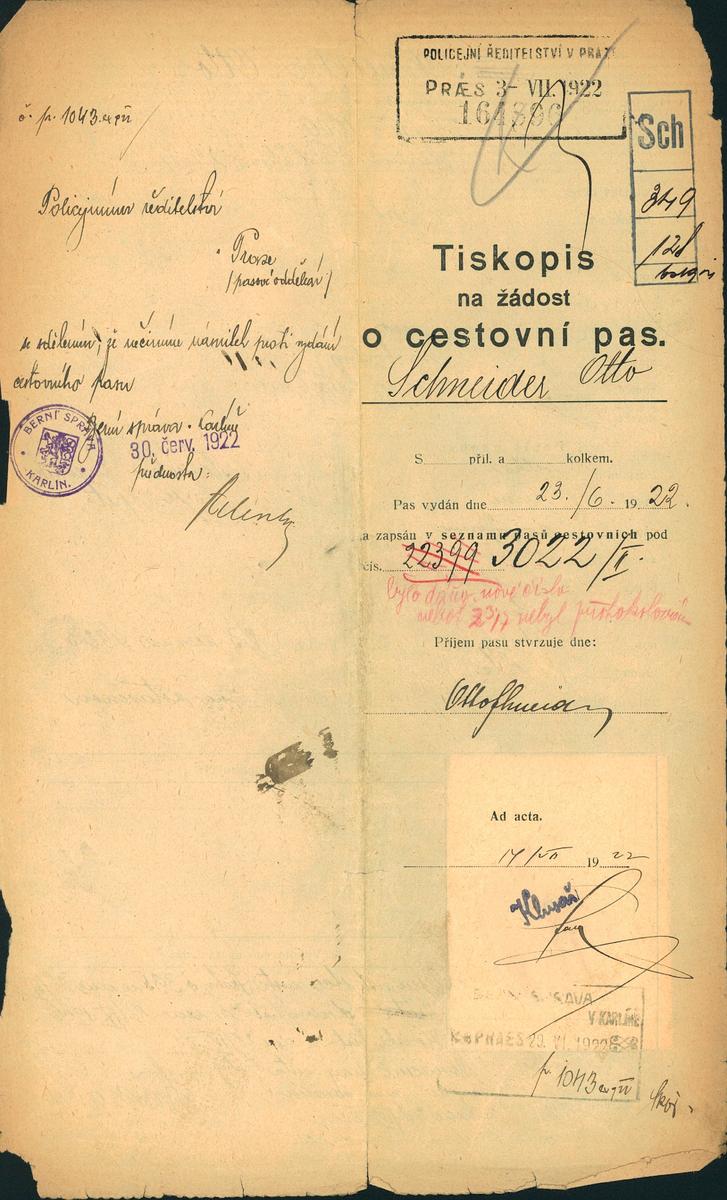 č. pr. 1043
Policejnímu ředitelství
Praze
/pasové oddělení/
se sdělením, že nečiníme námitek proti vydání
cestovního pasu
Berní správa Karlín
BERNÍ SPRÁVA
KARLÍN.
30. červ. 1922
přednosta:
POLICEJNÍ ŘEDITELSTVÍ V PRAZE
PRÆS 3- VII. 1922
164890
Sch
349
Tiskopis
na žádost
o cestovní pas.
Schneider Otto
S příl. a kolkem.
Pas vydán dne 23./6. 1922.
a zapsán v seznamu pasů cestovních pod
čís. 22399 3022/II.
bylo dáno nové číslo
neboť nebyl protokolován
Příjem pasu stvrzuje dne:
Otto Schneider
Ad acta.
14/VII 1922
BERNÍ SPRÁVA
V KARLÍNĚ
PRAES 29. VI. 1922
pr. 1043